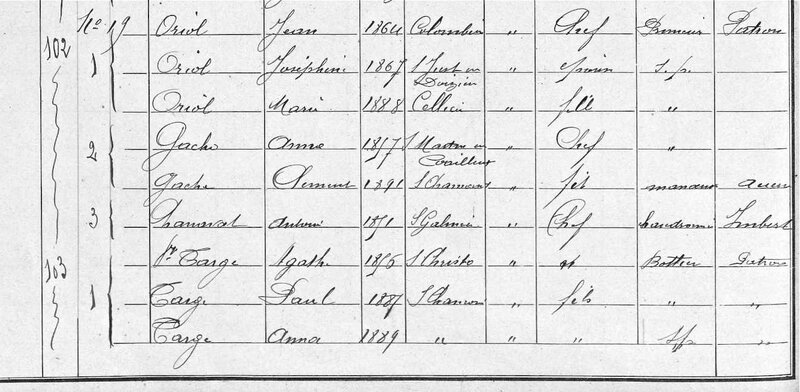 No 19 Oriol Jean 1864 Colombier " Chef Patron
102
1 Oriol Joséphine 1867 St Just en Doizieu " s.p.
Oriol Marie 1888 Cellieu " fille "
2 Gache Anna 1857 St Martin en Coailleux " Chef "
Gache Clément 1891 St Chamond " fils manoeuv
3 Antoine 1851 St Galmier " Chef Imbert
103
Vve Targe Agathe 1856 St Christo " Bottier Patron
1 Targe Paul 1887 St Chamond " fils " "
Targe Anna 1889 " " " sp "